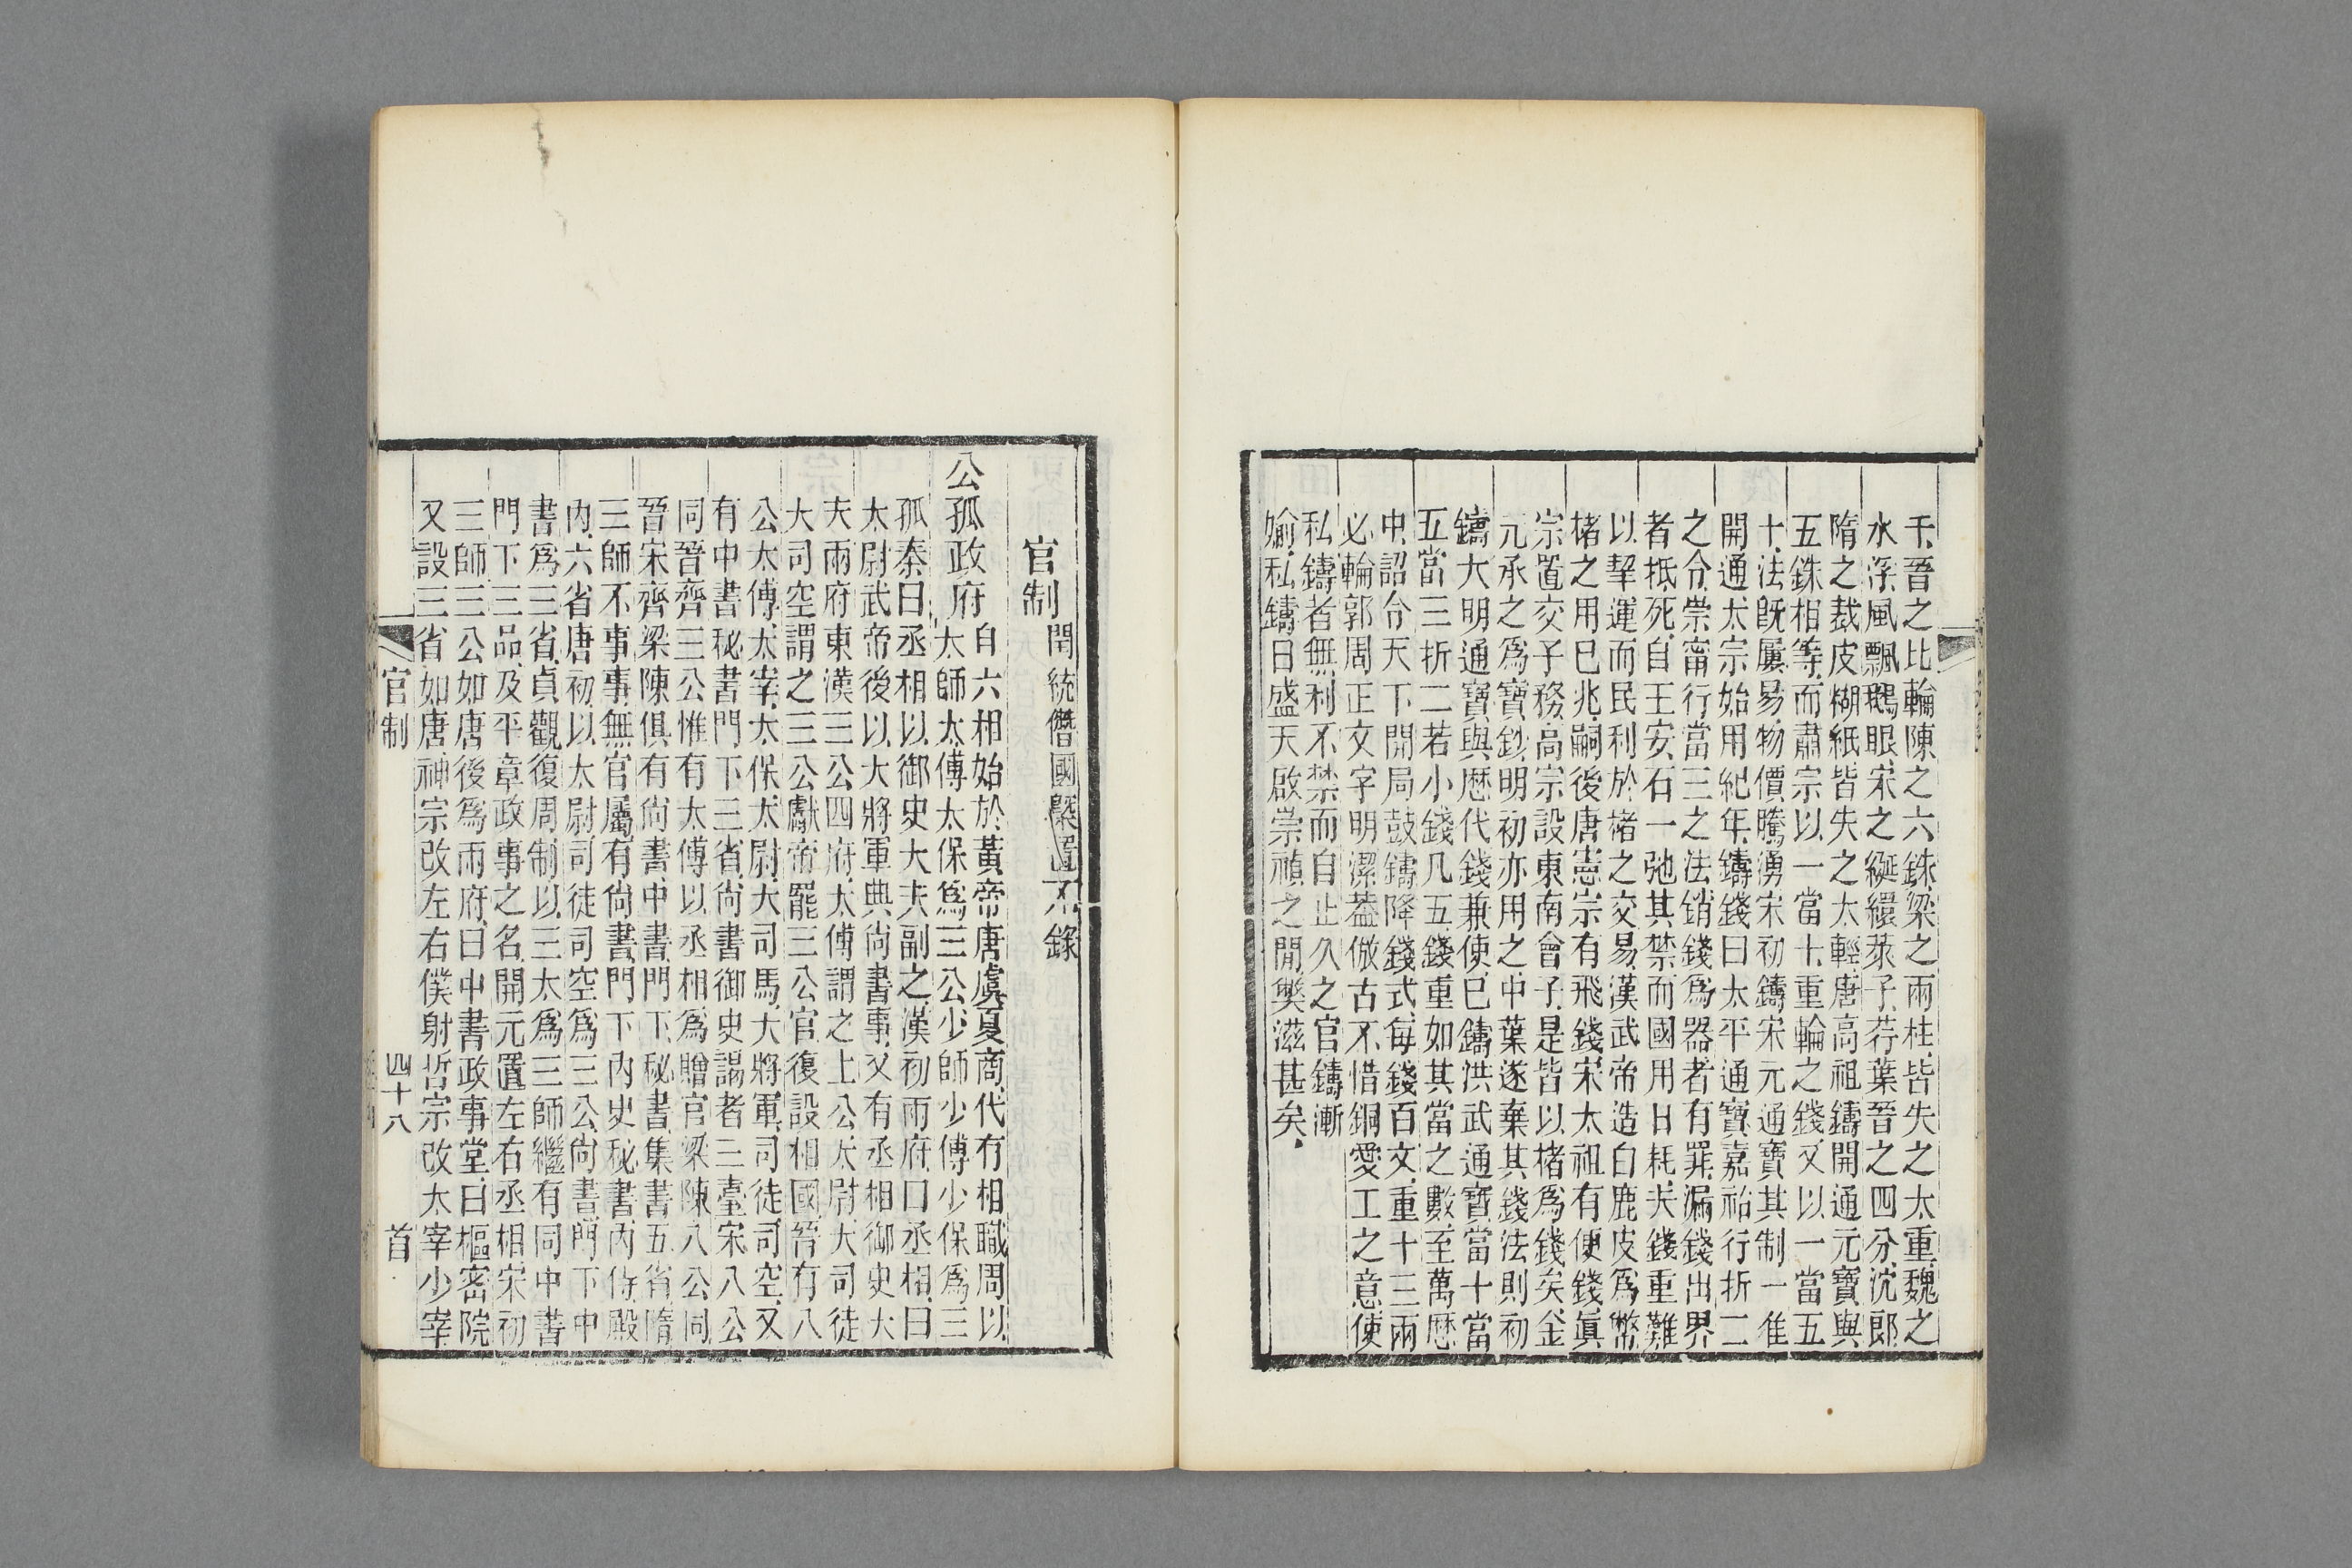 千吾之比輪陳之六銖梁之兩柱皆失之太重魏之
水浮風飄鵝眼宋之綖繯萊子荇葉晉之四分沈郎
隋之裁皮糊紙皆失之太輕唐高祖鑄開通元寶與
五銖相等而肅宗以一當十重輪之錢又以一當五
十法旣屢易物價騰湧宋初鑄宋元通寶其制一准
開通太宗始用紀年鑄錢曰太平通寶嘉祐行折二
之分崇甯行當三之法銷錢爲器者有罪漏錢出界
者抵死自王安石一弛其禁而國用日耗夫錢重難
以挈運而民利於楮之交易漢武帝造白鹿皮爲幣
楮之用已兆嗣後唐憲宗有飛錢宋太祖有便錢眞
宗置交子務高宗設東南會子是皆以楮爲錢矣金
元承之爲寶鈔明初亦用之中葉遂棄其錢法則初
鑄大明通寶與歷代錢兼使已鑄洪武通寶當十當
五當三折二若小錢凡五錢重如其當之數至萬歷
中詔令天下開局鼓鑄降錢式每錢百文重十三兩
必輪郭周正文字明潔葢倣古不惜銅愛工之意使
私鑄者無利不禁而自止久之官鑄漸
媮私鑄日盛天啟崇禎之閒獘滋甚矣
官制 閏統僭國槩置不錄
公孤政府 自六相始於黃帝唐虞夏商代有相職周以
太師太傅太保爲三公少師少傅少保爲三
孤秦曰丞相以御史大夫副之漢初兩府曰丞相曰
太尉武帝後以大將軍典尙書事又有丞相御史大
夫兩府東漢三公四府太傅謂之上公太尉大司徒
大司空謂之三公獻帝罷三公官復設相國晉有八
公太傅太宰太保太尉大司馬大將軍司徒司空又
有中書秘書門下三省尙書御史謁者三臺宋八公
同晉齊三公惟有太傅以丞相爲贈官梁陳八公同
晉宋齊梁陳俱有尙書中書門下秘書集書五省隋
三師不事事無官屬有尙書門下內史秘書內侍殿
內六省唐初以太尉司徒司空爲三公尙書門下中
書爲三省貞觀復周制以三太爲三師繼有同中書
門下三品及平章政事之名開元置左右丞相宋初
三師三公如唐後爲兩府曰中書政事堂曰樞密院
又設三省如唐神宗改左右僕射哲宗改太宰少宰
官制 四十八 首